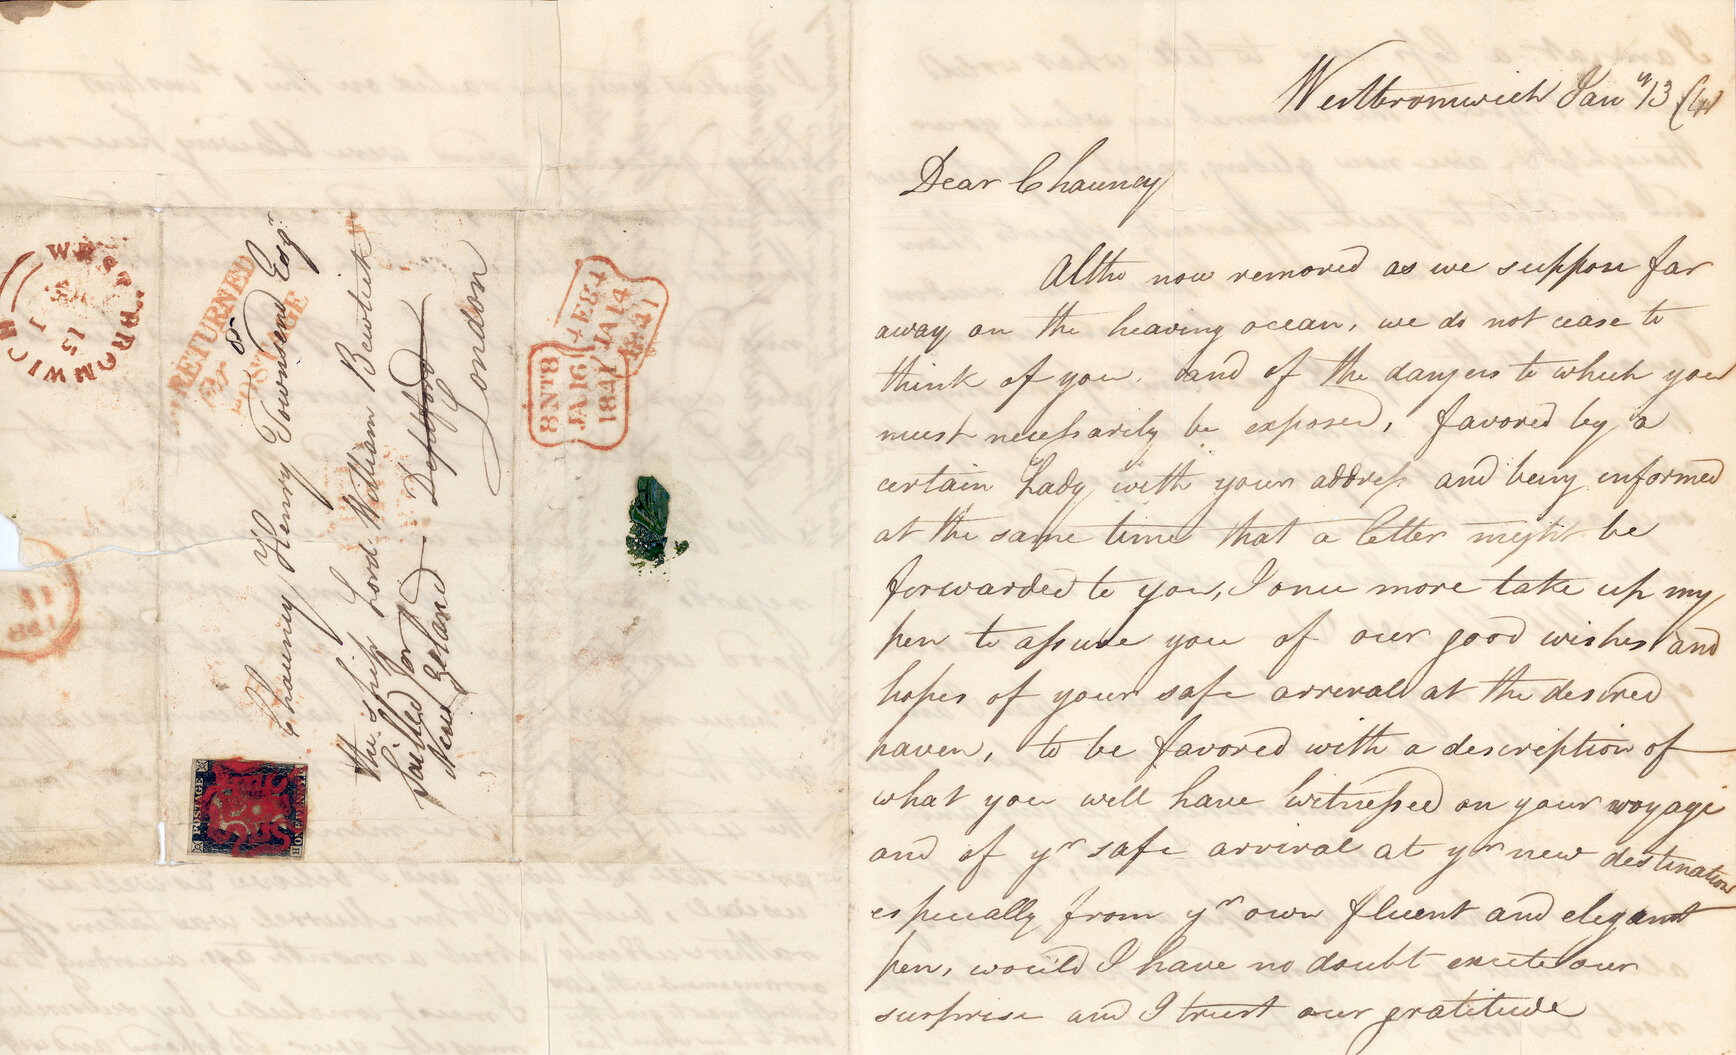 WESTBROMWICH
RETURNED
for
POSTAGE
Chauncy Henry Townsend Esqr
the ship Lord William Bentick
Sailed for Deptford
New Zeland
London
POSTAGE
ONE PENNY
8NT8
JA16
1841
JA14
1841
1841
Westbromwich Jany 13 /41
Dear Chauncy
Altho now removed as we suppose far
away on the heaving ocean, we do not cease to
think of you, and of the dangers to which you
must necessarily be exposed, favored by a
certain Lady with your address and being informed
at the same time that a letter might be
forwarded to you, I once more take up my
pen to assure you of our good wishes and
hopes of your safe arrival at the desired
haven, to be favored with a description of
what you will have witnessed on your voyage
and of yr safe arrival at yr new destination
especially from yr own fluent and elegant
pen, would I have no doubt excite our
surprise and I trust our gratitude